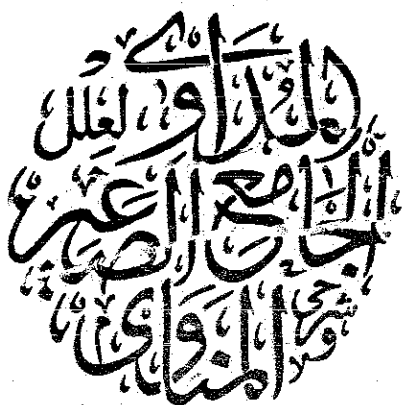 المداوي لعلل
الجامع الصغير
وشرحي المناوي